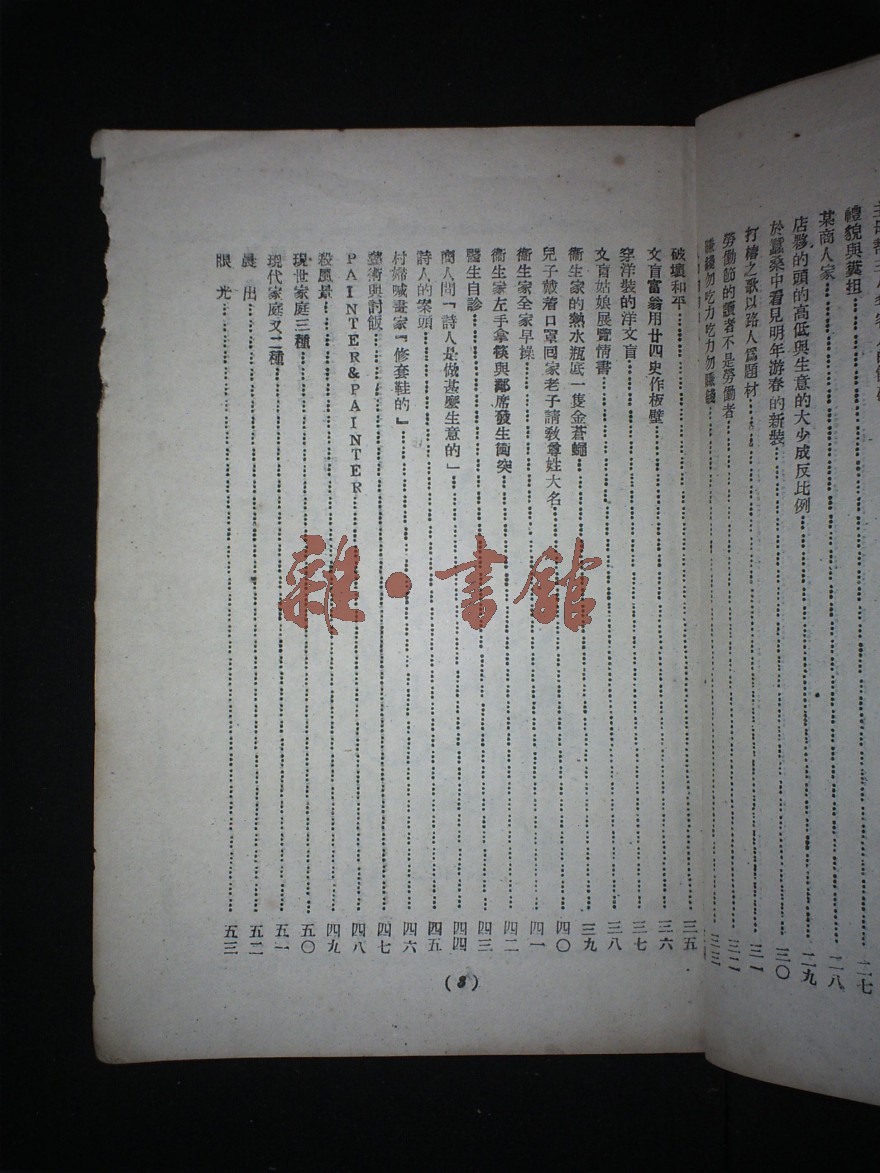 禮貌與糞担 二七
某商人家 二八
店夥的頭的高低與生意的大少成反比例 二九
於蠶桑中看見明年游春的新裝 三〇
打樁之歌以路人爲題材 三一
勞働節的讀者不是勞働者 三二
賺錢勿吃力吃力勿賺錢 三三
破壞和平 三五
文盲富翁用廿四史作板壁 三六
穿洋裝的洋文盲 三七
文盲姑娘展覽情書 三八
衞生家的熱水瓶底一隻金蒼蠅 三九
兒子戴着口罩回家老子請敎尊姓大名 四〇
衞生家全家早操 四一
衞生家左手拿筷與鄰席發生衝突 四二
醫生自診 四三
商人問「詩人是做甚麼生意的」 四四
詩人的案頭 四五
村婦喊畫家『修套鞋的』 四六
藝術與討飯 四七
PAINTER&PAINTER 四八
殺風景 四九
現世家庭三種 五〇
現代家庭又二種 五一
晨出 五二
眼光 五三
(3)
雜·書館